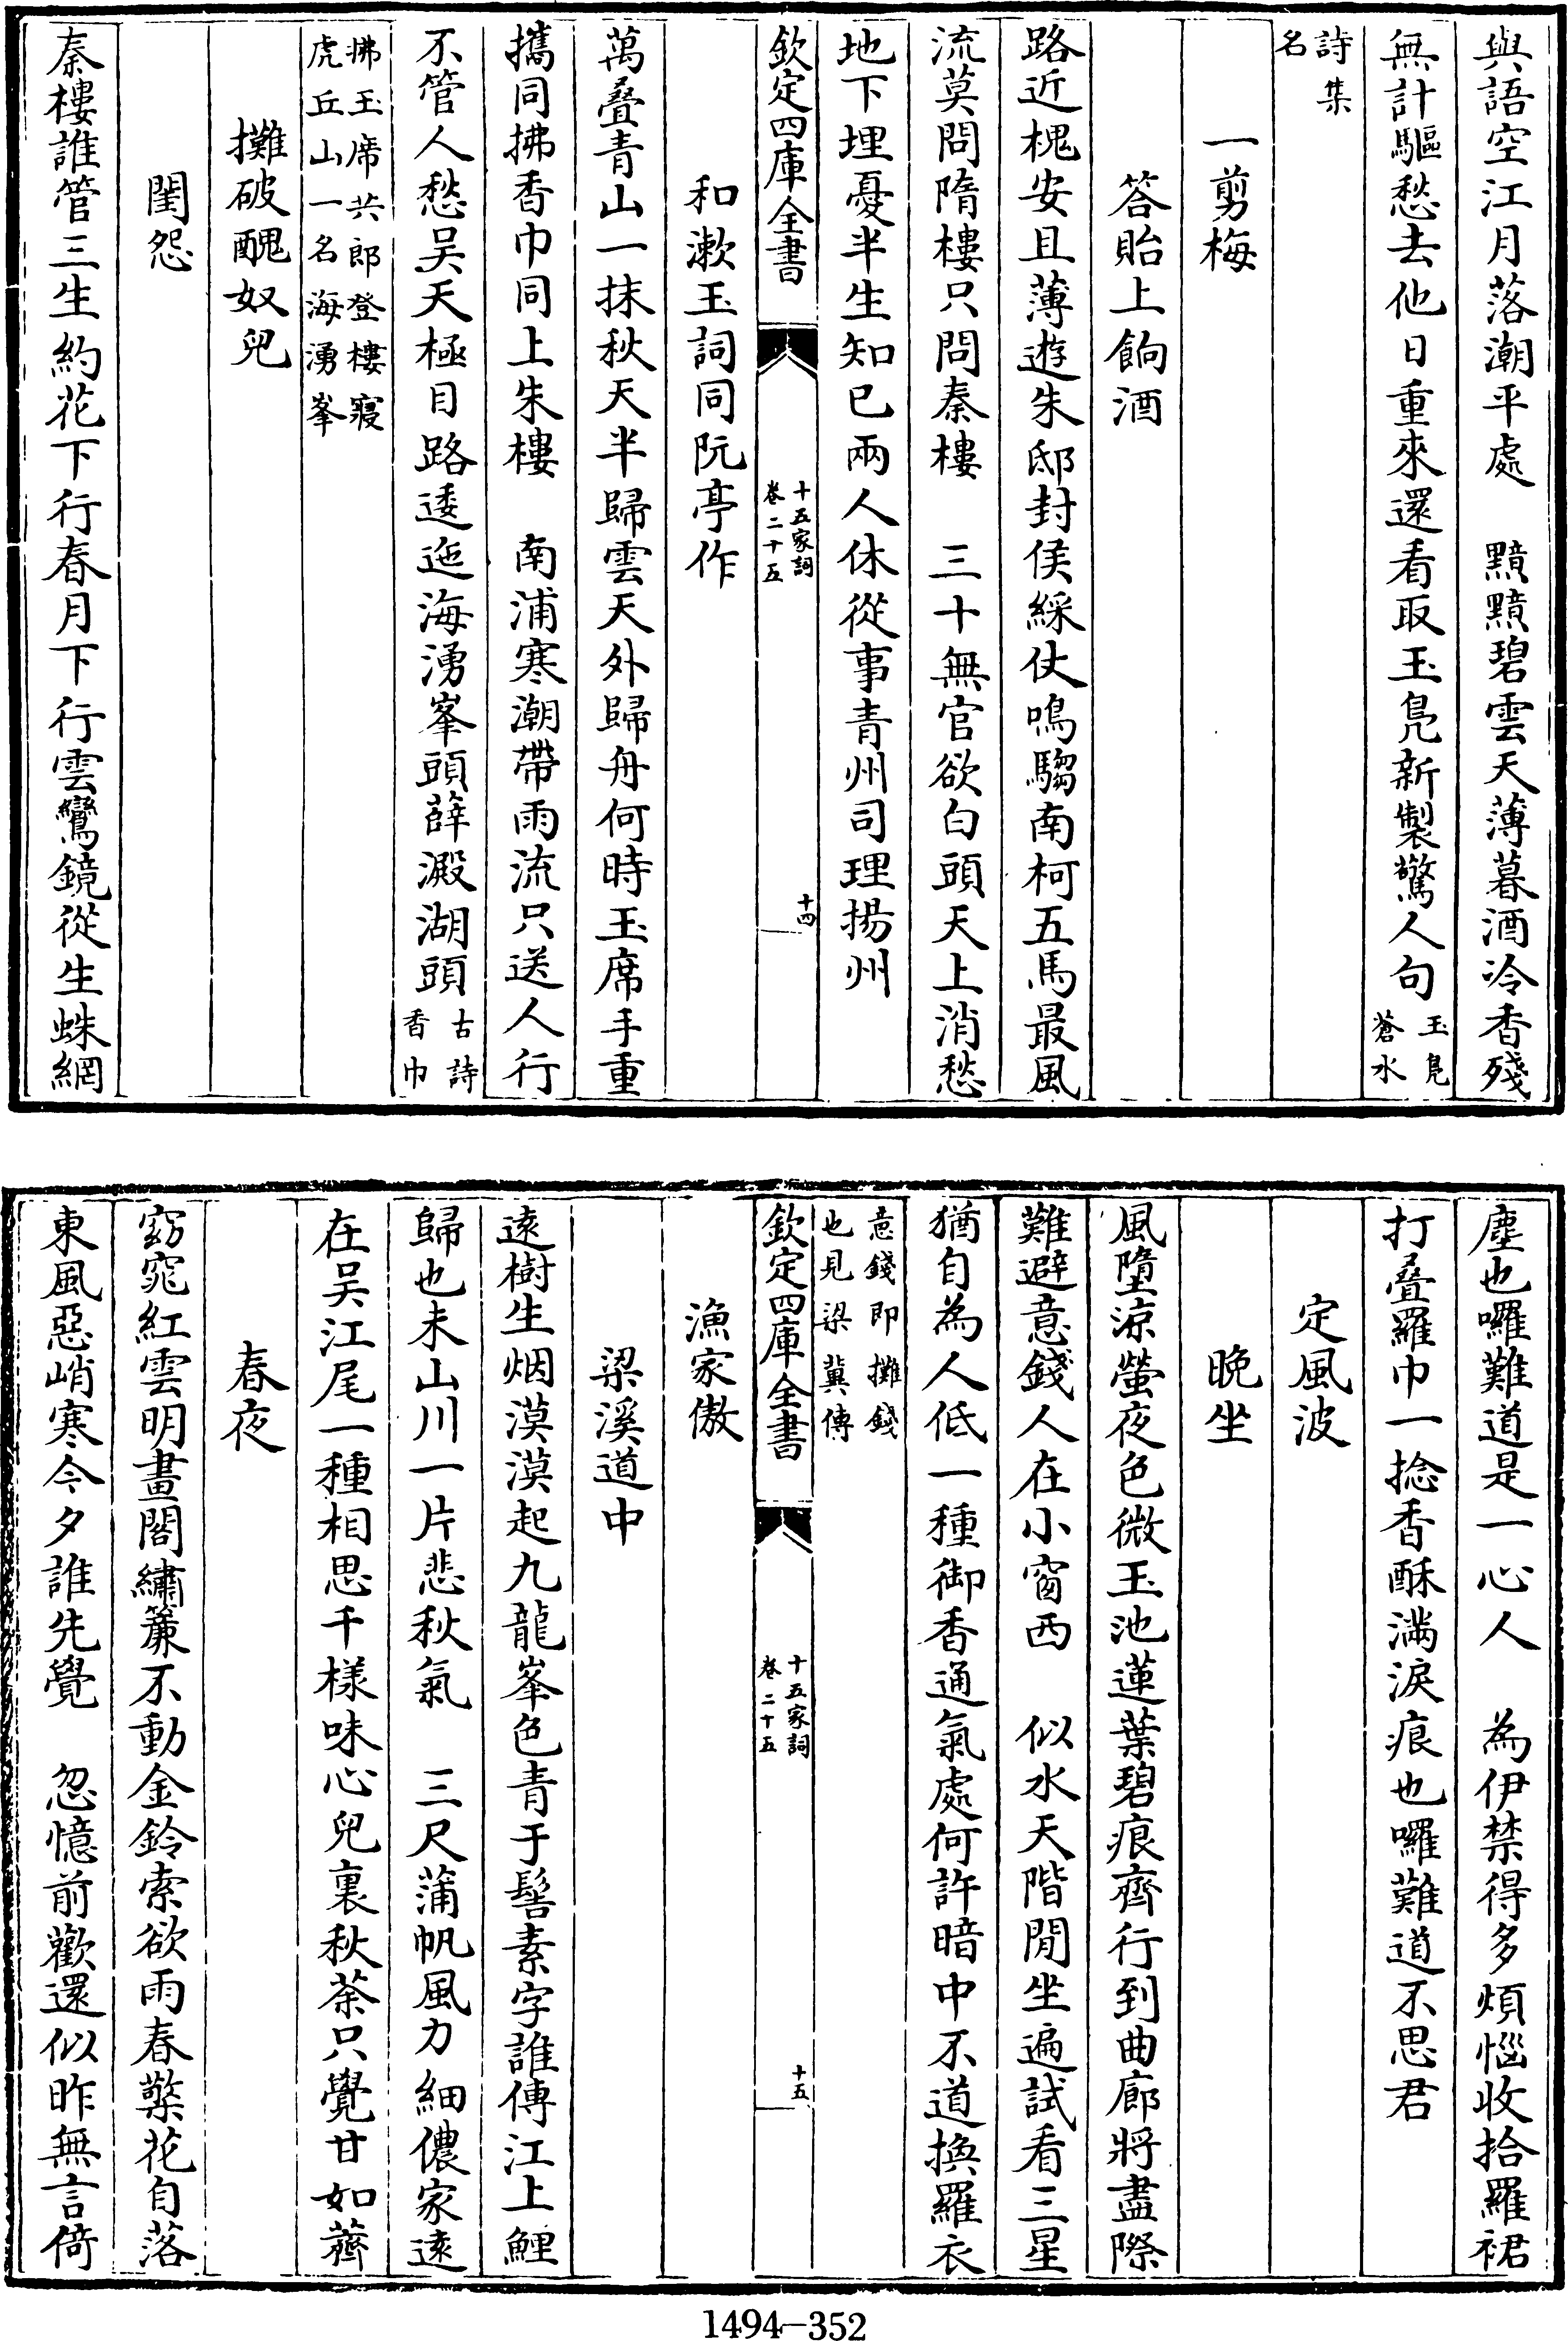 與語空江月落潮平處　黯黯碧雲天薄暮酒冷香殘
無計驅愁去他日重來還看取玉鳧新製驚人句玉鳧蒼水
詩集名
一剪梅
答貽上餉酒
路近槐安且薄遊朱邸封侯綵仗鳴騶南柯五馬最風
流莫問隋樓只問秦樓　三十無官欲白頭天上消愁
地下埋憂半生知已兩人休從事青州司理揚州
欽定四庫全書
十五家詞
卷二十五
十四
和漱玉詞同阮亭作
萬疊青山一抹秋天半歸雲天外歸舟何時玉席手重
攜同拂香巾同上朱樓　南浦寒潮帶雨流只送人行
不管人愁吳天極目路逶迤海湧峯頭薛澱湖頭古詩香巾
拂玉席共郎登樓寢
虎丘山一名海湧峯
攤破醜奴兒
閨怨
秦樓誰管三生約花下行春月下行雲鸞鏡從生蛛網
塵也囉難道是一心人　為伊禁得多煩惱收拾羅裙
打疊羅巾一捻香酥滿淚痕也囉難道不思君
定風波
晚坐
風墮涼螢夜色微玉池蓮葉碧痕齊行到曲廊將盡際
難避意錢人在小窗西　似水天階閒坐遍試看三星
猶自為人低一種御香通氣處何許暗中不道換羅衣
意錢即攤錢
也見梁冀傳
欽定四庫全書
十五家詞
卷二十五
十五
漁家傲
梁溪道中
遠樹生烟漠漠起九龍峯色青于髻素字誰傳江上鯉
歸也未山川一片悲秋氣　三尺蒲帆風力細儂家遠
在吳江尾一種相思千樣味心兒裏秋荼只覺甘如薺
春夜
窈窕紅雲明畫閣繡簾不動金鈴索欲雨春檠花自落
東風惡峭寒今夕誰先覺　忽憶前歡還似昨無言倚
1494—352